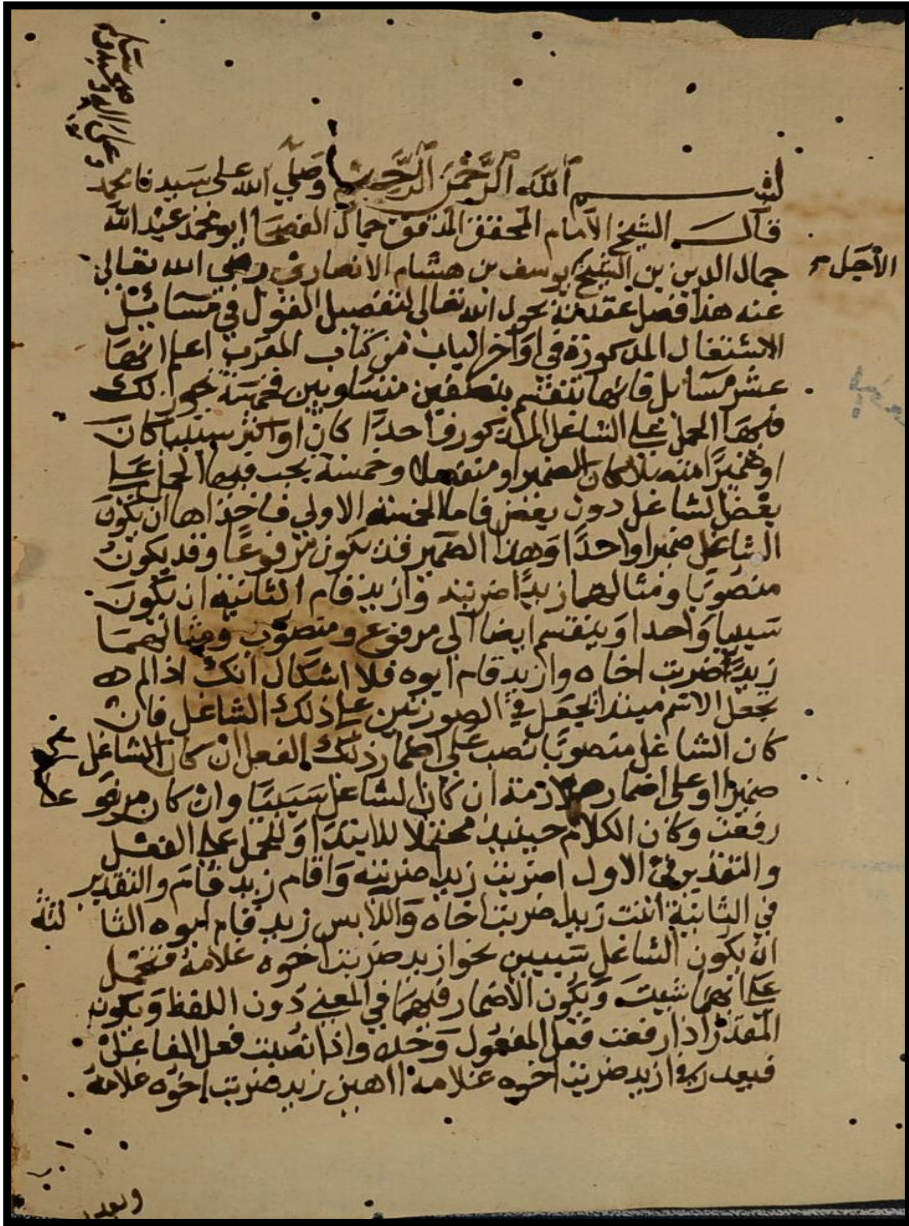 بسم الله الرحمن الرحيم وصلي الله على سيدنا محمد
قال الشيخ الامام المحقق المدقق جمال الفصحا ابو محمد عبد الله
الأجل
جمال الدين بن الشيخ يوسف بن هشام الانصاري رضي الله تعالى
عنه هذا فصل عقدته بحول الله تعالى لتفصيل القول في مسائل
الاشتغال المذكورة في اواخر الباب من كتاب المقرب اعلم انها
عشر مسائل فانها تنقسم بنصفين متساويين فخمسة يجوز لك
فيها الحمل على الشاغل المذكور واحدا كان او اكثر سببيا كان
او ضميرا متصلا كان الضمير او منفصلا وخمسة يجب فيها الحمل على
بعض الشاغل دون بعض فاما الخمسة الاولي فاحداها ان يكون
الشاغل ضميرا واحدا وهذا الضمير قد يكون مرفوعا وقد يكون
منصوبا ومثالهما ازيدا ضربته وازيد قام الثانية ان يكون
سببيا واحدا وينقسم ايضا الى مرفوع ومنصوب ومثالهما
زيدا ضربت اخاه وازيد قام ابوه فلا اشكال انك اذا لم
تجعل الاسم مبتدا تحمل في الصورتين على ذلك الشاغل فان
كان الشاغل منصوبا نصبت على اضمار ذلك الفعل ان كان الشاغل
ضميرا او على اضمار ملازمه ان كان الشاغل سببيا وان كان مرفوعا
رفعت وكان الكلام حينيذ محتملا للابتدا وللحمل على الفعل
والتقدير في الاول اضربت زيدا ضربته واقام زيد قام والتقدير
في الثانية اهنت زيدا ضربت اخاه والابس زيد قام ابوه الثالثة
ان يكون الشاغل سببيين نحو ازيد ضربت اخوه غلامه فتحمل
على ايهما شيت ويكون الاضمار فيهما في المعنى دون اللفظ ويكون
المقدر اذا رفعت فعل المفعول وحده واذا نصبت فعل الفاعل
فيقدر في ازيد ضربت اخوه غلامه ااهين زيد ضربت اخوه غلامه